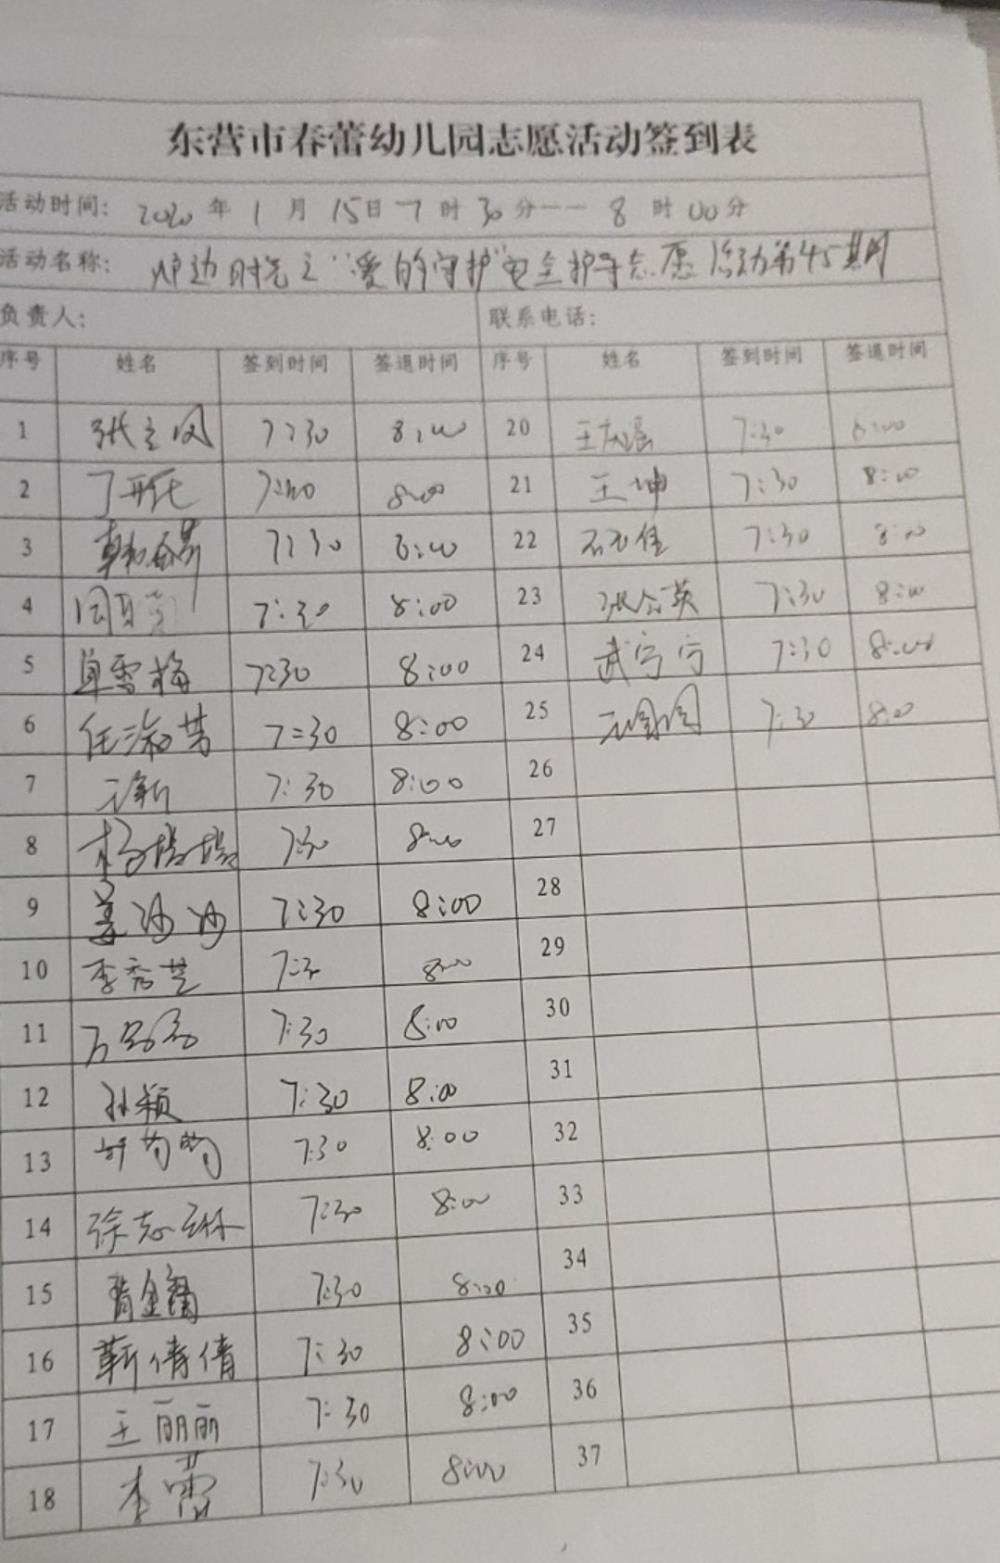 东营市春蕾幼儿园志愿活动签到表
活动时间: 2020 年 1 月 15日 7 时 30 分一一 8 时 00 分
活动名称: 炉边时光之"爱的守护"安全护导志愿活动第45期
负责人: 联系电话:
序号 姓名 签到时间 签退时间 序号 姓名 签到时间 签退时间
1 7:30 8:00 20 7:30 8:00
2 7:30 8:00 21 王坤 7:30 8:00
3 7:30 8:00 22 7:30 8:00
4 7:30 8:00 23 7:30 8:00
5 单雪梅 7:30 8:00 24 武宁宁 7:30 8:00
6 任淑芳 7:30 8:00 25 7:30 8:00
7 7:30 8:00 26
8 杨瑞瑞 7:30 8:00 27
9 姜沙沙 7:30 8:00 28
10 李秀芝 7:30 8:00 29
11 7:30 8:00 30
12 孙颖 7:30 8:00 31
13 7:30 8:00 32
14 徐志琳 7:30 8:00 33
15 7:30 8:00 34
16 靳倩倩 7:30 8:00 35
17 王丽丽 7:30 8:00 36
18 李蕾 7:30 8:00 37